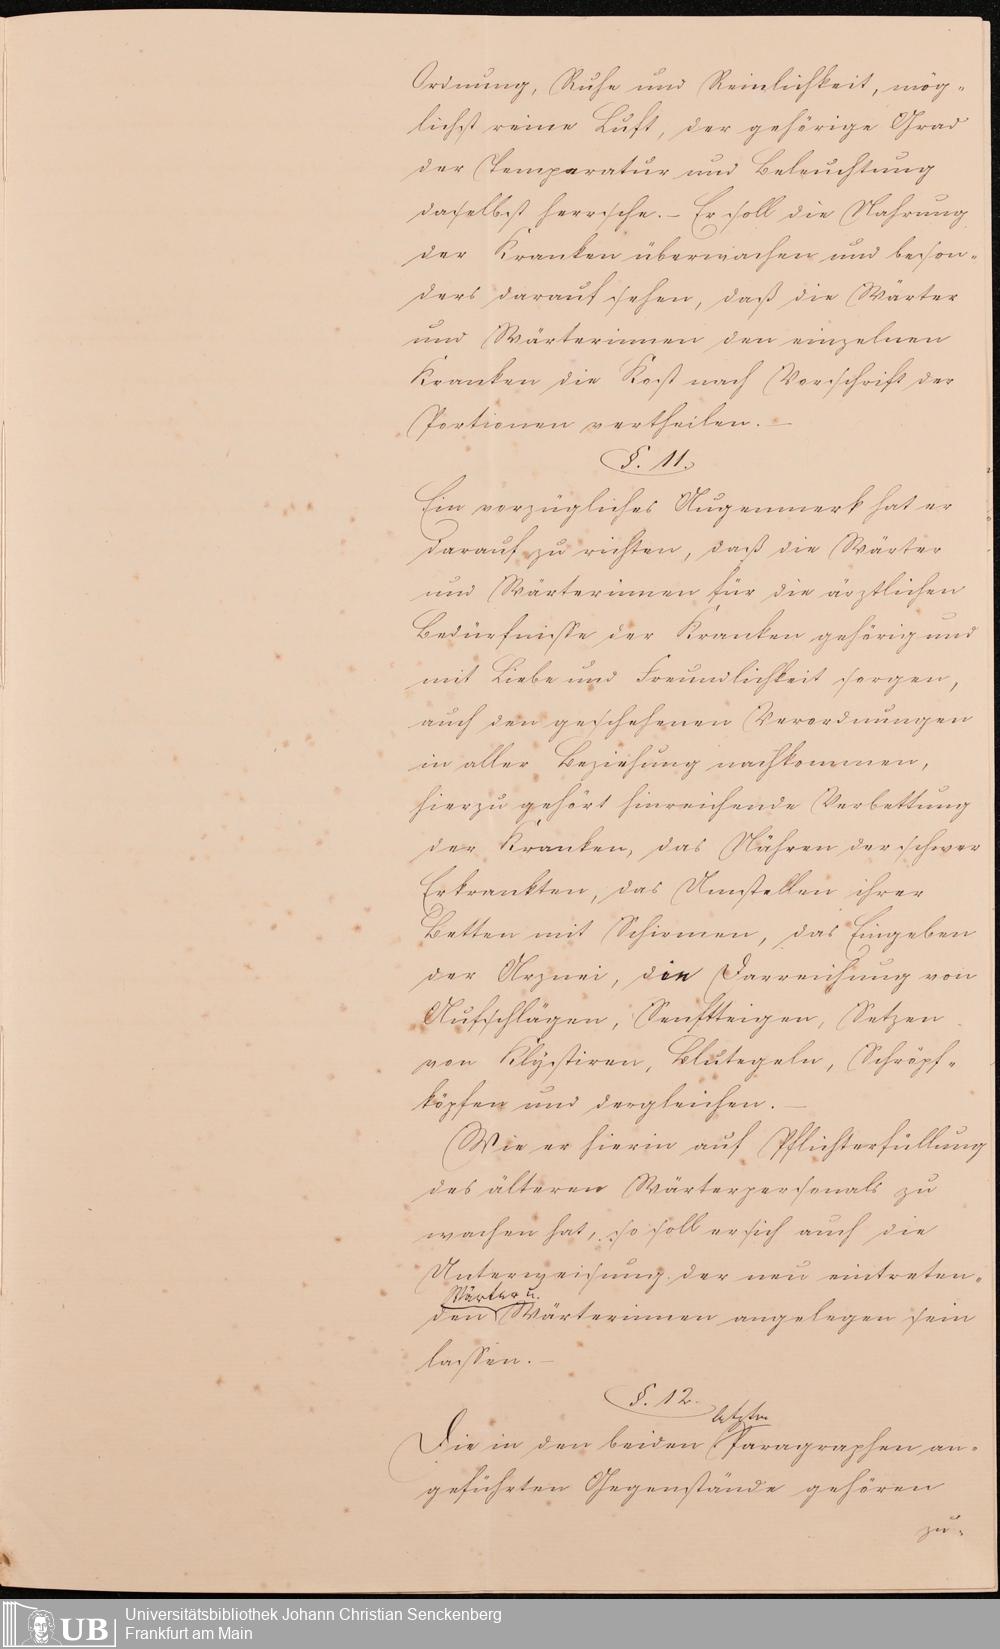 Ordnung, Ruhe und Reinlichkeit, mög-
lichst reine Luft, der gehörige Grad
der Temperatur und Beleuchtung
daselbst herrsche. – Er soll die Nahrung
der Kranken überwachen und beson-
ders darauf sehen, daß die Wärter
und Wärterinnen den einzelnen
Kranken die Kost nach Vorschrift der
Portionen vertheilen. –
§. 11.
Ein vorzügliches Augenmerk hat er
darauf zu richten, daß die Wärter
und Wärterinnen für die ärztlichen
Bedürfnisse der Kranken gehörig und
mit Liebe und Freundlichkeit sorgen,
auch den geschehenen Verordnungen
in aller Beziehung nachkommen,
hierzu gehört hinreichende Verbettung
der Kranken, das Nähren der schwer
Erkrankten, das Umstellen ihrer
Betten mit Schirmen, das Eingeben
der Arznei, die Darreichung von
Aufschlägen, Senftteigen, Setzen
von Klystiren, Blutegeln, Schröpf-
köpfen und dergleichen. –
Wie er hierin auf Pflichterfüllung
des älteren Wärterpersonals zu
wachen hat, so soll er sich auch die
Unterweisung der neu eintreten-
Wärter u.
den Wärterinnen angelegen sein
lassen. –
§. 12.
letzten
Die in den beiden Paragraphen an-
geführten Gegenstände gehören
zu-
Universitätsbibliothek Johann Christian Senckenberg
UB Frankfurt am Main